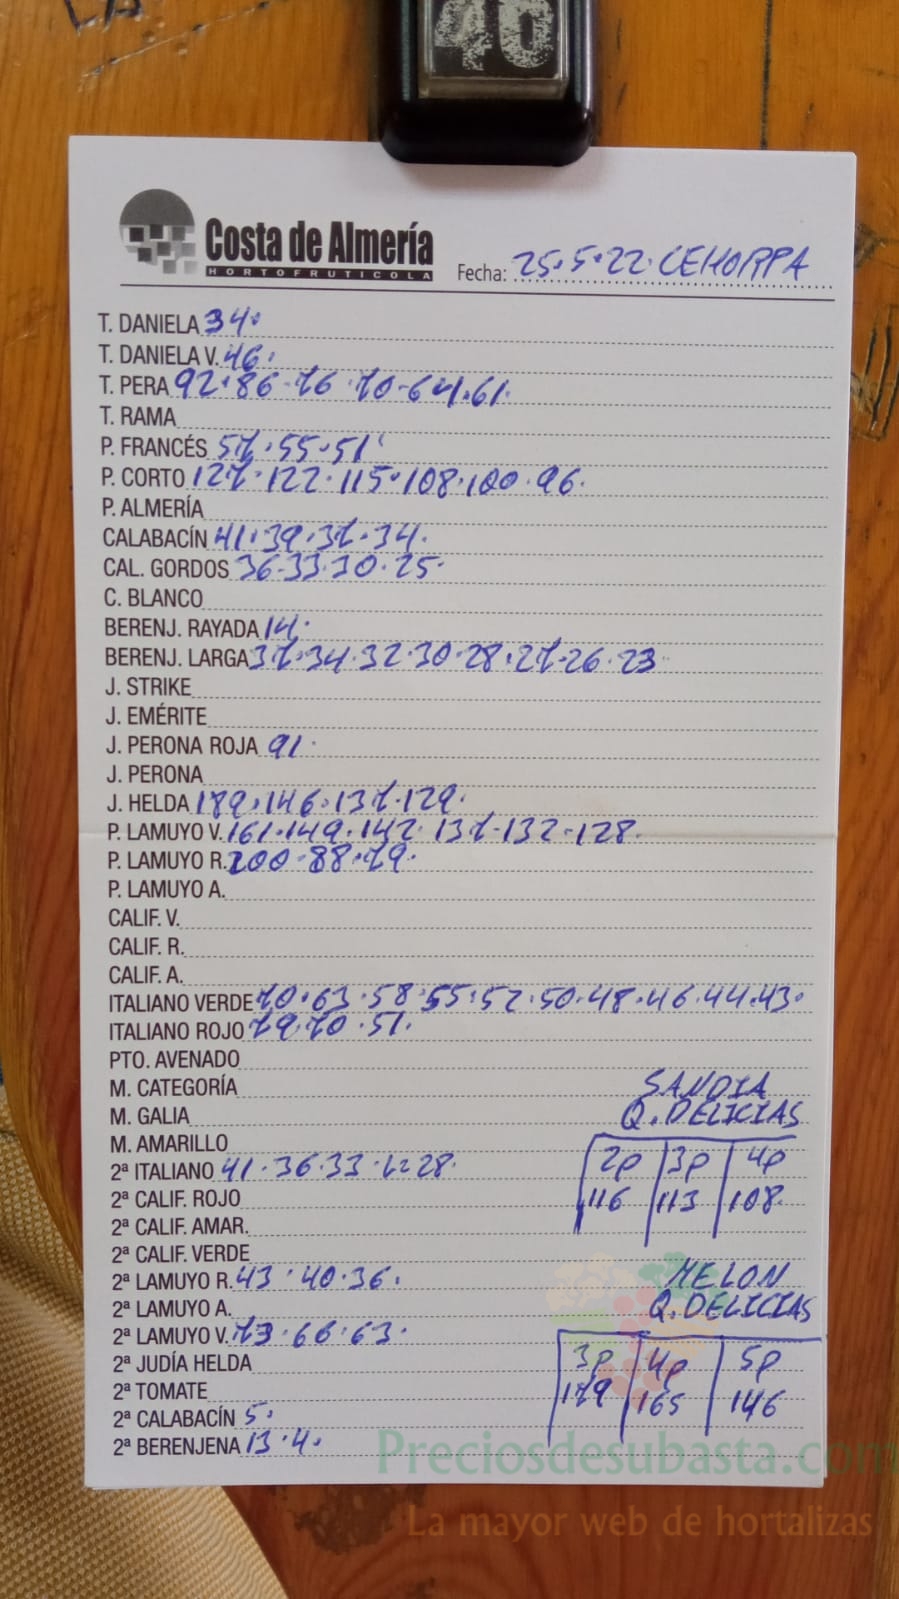 46
Costa de Almería
HORTOFRUTICOLA
Fecha: 25.5.22. CEHORPA
T. DANIELA 34.
T. DANIELA V. 46.
T. PERA 92.86.76.70.64.61.
T. RAMA
P. FRANCÉS 57.55.51
P. CORTO 127.122.115.108.100.96.
P. ALMERÍA
CALABACÍN 41.39.37.34.
CAL. GORDOS 36.33.30.25.
C. BLANCO
BERENJ. RAYADA 14.
BERENJ. LARGA 37.34.32.30.28.27.26.23
J. STRIKE
J. EMÉRITE
J. PERONA ROJA 91.
J. PERONA
J. HELDA 189.146.137.129.
P. LAMUYO V. 161.149.142.137.132.128.
P. LAMUYO R. 88.79.
P. LAMUYO A.
CALIF. V.
CALIF. R.
CALIF. A.
ITALIANO VERDE 70.63.58.55.52.50.48.46.44.43.
ITALIANO ROJO 79.70.51.
PTO. AVENADO
M. CATEGORÍA
M. GALIA
M. AMARILLO
2ª ITALIANO 41.36.33. 28.
2ª CALIF. ROJO
2ª CALIF. AMAR.
2ª CALIF. VERDE
2ª LAMUYO R. 43.40.36.
2ª LAMUYO A.
2ª LAMUYO V. 73.66.63.
2ª JUDÍA HELDA
2ª TOMATE
2ª CALABACÍN 5.
2ª BERENJENA 13.4.
SANDIA
Q. DELICIAS
2p 3p 4p
116 113 108.
MELON
Q. DELICIAS
3p 4p 5p
179 165 146
Preciosdesubasta.com
La mayor web de hortalizas